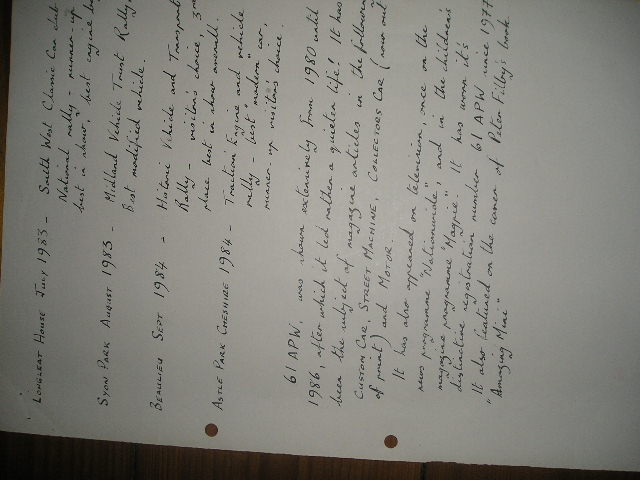 LONGLEAT HOUSE JULY 1983 - South West Classic Car club
National rally - runner-up
best in show, best engine bay
SYON PARK AUGUST 1983 - Midland Vehicle Trust Rally
Best modified vehicle.
BEAULIEU SEPT 1984 - Historic Vehicle and Transport
Rally - visitors choice, 3rd
place best in show overall.
ASTLE PARK CHESHIRE 1984 - Traction Engine and vehicle
rally - best "modern" car,
runner-up visitors choice.
61 APW, was shown extensively from 1980 until
1986, after which it led rather a quieter life! It has
been the subject of magazine articles in the following
CUSTOM CAR, STREET MACHINE, COLLECTORS CAR (now out
of print) and MOTOR.
It has also appeared on television, once on the
news programme "Nationwide", and in the children's
magazine programme "Magpie". It has worn it's
distinctive registration number 61 APW since 1977
It also featured on the cover of Peter Filby's book
"Amazing Mini"